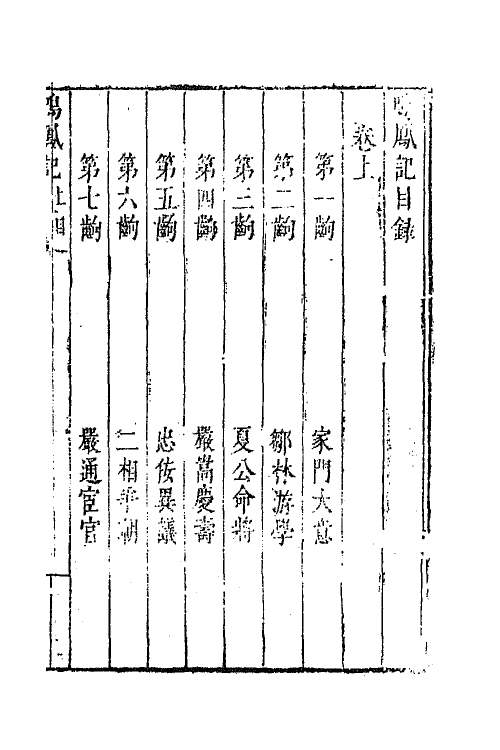 鳴鳳記目錄
卷上
第一齣 家門大意
第二齣 鄒林游學
第三齣 夏公命將
第四齣 嚴嵩慶壽
第五齣 忠佞異議
第六齣 二相爭朝
第七齣 嚴通宦官
鳴鳳記 上目 一